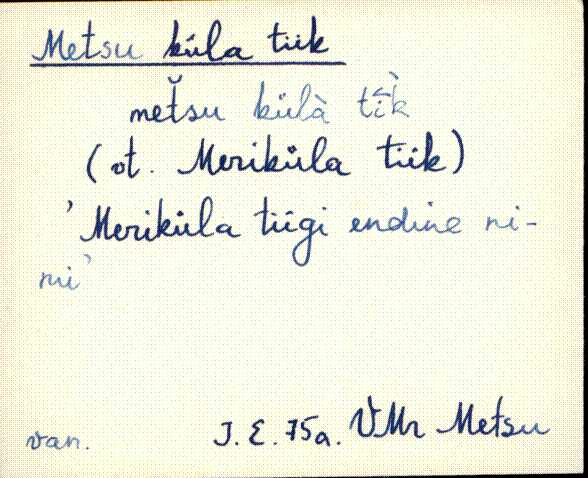 Metsu küla tiik
met̆su külà tì̄k
(vt. Meriküla tiik)
'Meriküla tiigi endine ni-
mi'
van. J.E. 75a. VMr Metsu